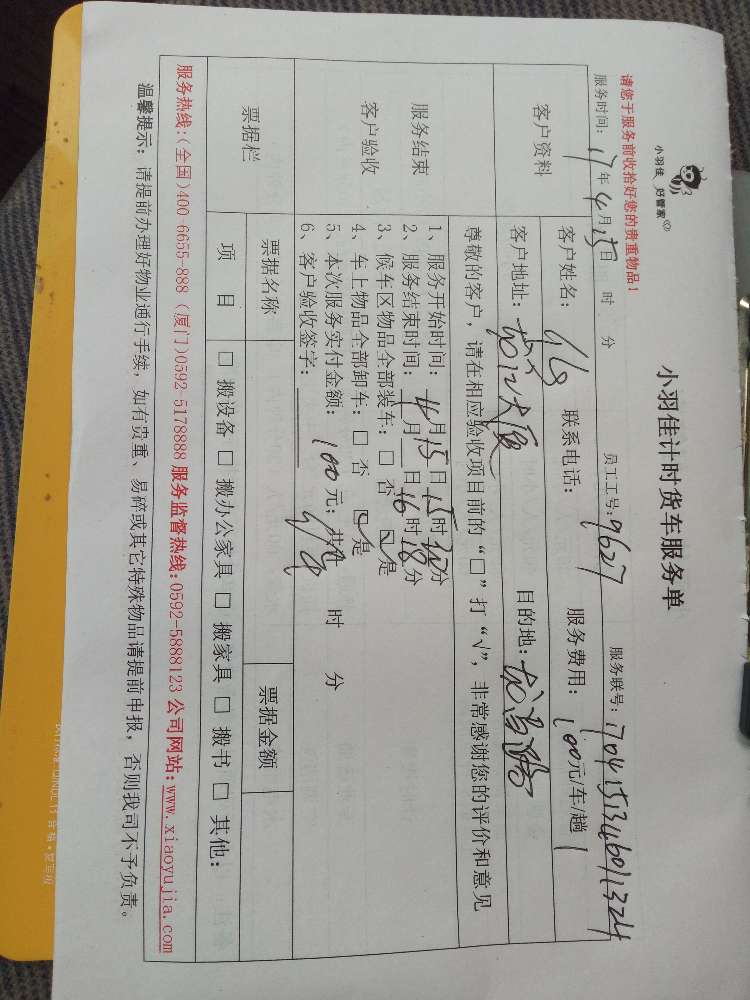 请您于服务前收拾好您的贵重物品！
小羽佳 好管家
小羽佳计时货车服务单
服务时间：17年4月15日 时 分 员工工号：9627 服务联号：
客户资料
客户姓名： 联系电话： 服务费用：100元/车/趟
客户地址： 目的地：
尊敬的客户，请在相应验收项目前的“□”打“√”，非常感谢您的评价和意见
服务结束
客户验收
1、服务开始时间：4月15日15时30分
2、服务结束时间： 月 日16时18分
3、候车区物品全部装车：□ 否 ☑ 是
4、车上物品全部卸车：□ 否 ☑ 是
5、本次服务实付金额：100元；共 时 分
6、客户验收签字：
票据栏
票据名称 票据金额
项 目 □ 搬设备 □ 搬办公家具 □ 搬家具 □ 搬书 □ 其他：
服务热线：(全国)400-6655-888 (厦门)0592-5178888 服务监督热线：0592-5888123 公司网站：www.xiaoyujia.com
温馨提示：请提前办理好物业通行手续，如有贵重、易碎或其它特殊物品请提前申报，否则我司不予负责。